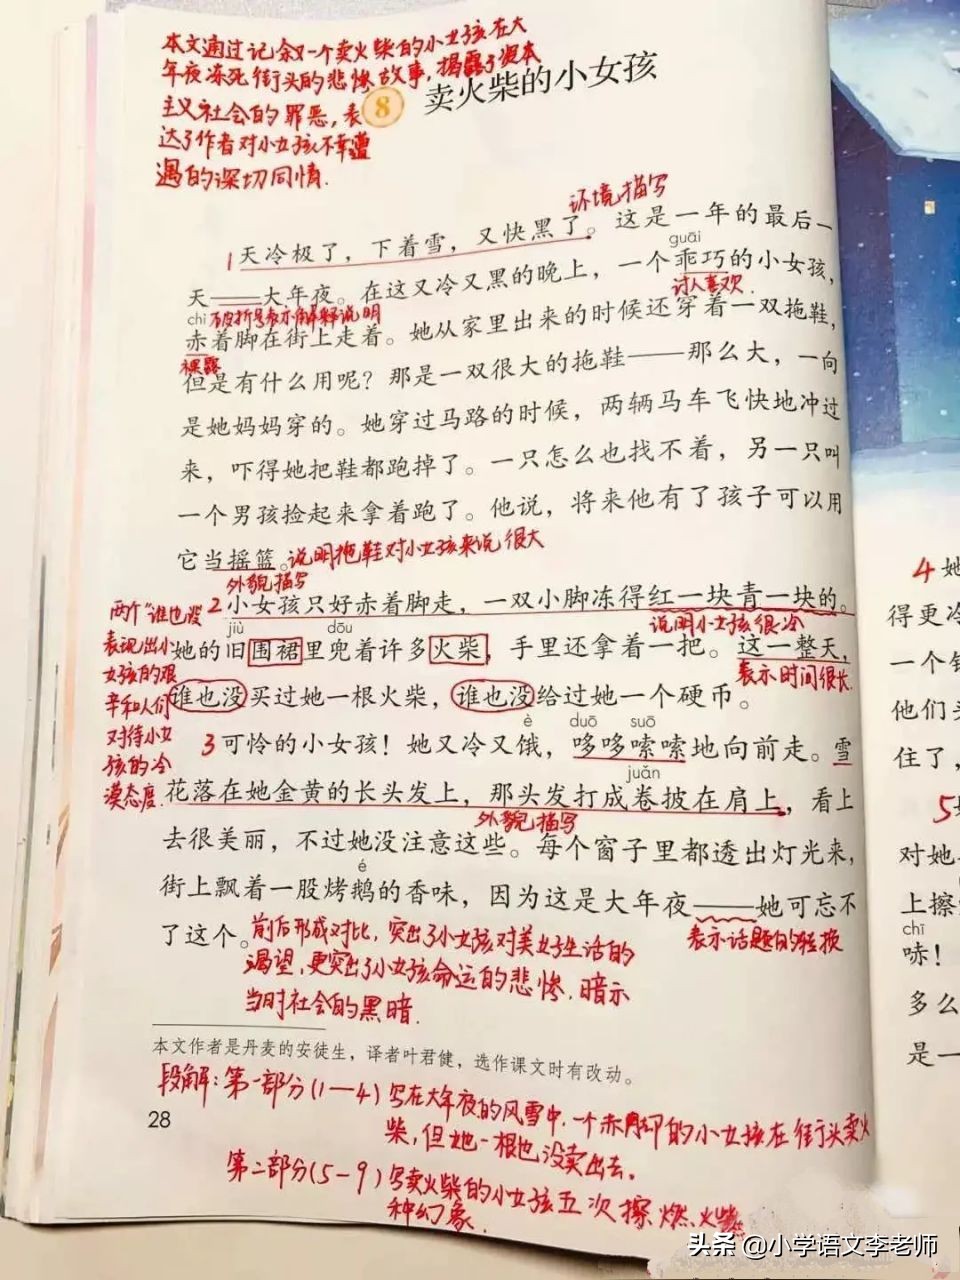 本文通过记叙一个卖火柴的小女孩在大
年夜冻死街头的悲惨故事,揭露了资本
主义社会的罪恶,表
达了作者对小女孩不幸遭
遇的深切同情.
8 卖火柴的小女孩
环境描写
1天冷极了，下着雪，又快黑了。这是一年的最后一
guāi
天——大年夜。在这又冷又黑的晚上，一个乖巧的小女孩，
讨人喜欢.
chì 破折号表示解释说明
赤着脚在街上走着。她从家里出来的时候还穿着一双拖鞋，
裸露
但是有什么用呢？那是一双很大的拖鞋——那么大，一向
是她妈妈穿的。她穿过马路的时候，两辆马车飞快地冲过
来，吓得她把鞋都跑掉了。一只怎么也找不着，另一只叫
一个男孩捡起来拿着跑了。他说，将来他有了孩子可以用
它当摇篮。说明拖鞋对小女孩来说很大
外貌描写
2小女孩只好赤着脚走，一双小脚冻得红一块青一块的。
说明小女孩很冷
jiù dōu
她的旧围裙里兜着许多火柴，手里还拿着一把。这一整天，
表示时间很长
谁也没买过她一根火柴，谁也没给过她一个硬币。
两个"谁也没
表现出小
女孩的艰
辛和人们
对待小女
孩的冷
漠态度.
è duō suō
3可怜的小女孩！她又冷又饿，哆哆嗦嗦地向前走。雪
juǎn
花落在她金黄的长头发上，那头发打成卷披在肩上，看上
外貌描写
去很美丽，不过她没注意这些。每个窗子里都透出灯光来，
é
街上飘着一股烤鹅的香味，因为这是大年夜——她可忘不
表示话题的转换
了这个。
前后形成对比,突出了小女孩对美好生活的
渴望,更突出了小女孩命运的悲惨.暗示
当时社会的黑暗.
本文作者是丹麦的安徒生，译者叶君健，选作课文时有改动。
段解:第一部分(1—4)写在大年夜的风雪中.一个赤脚的小女孩在街头卖火
柴,但她一根也没卖出去.
28
第二部分(5-9)写卖火柴的小女孩五次擦燃火柴
种幻象.
4她
得更冷
一个
他们
住了，
5
对她
上擦
chī
哧！
多么
是一
头条 @小学语文李老师